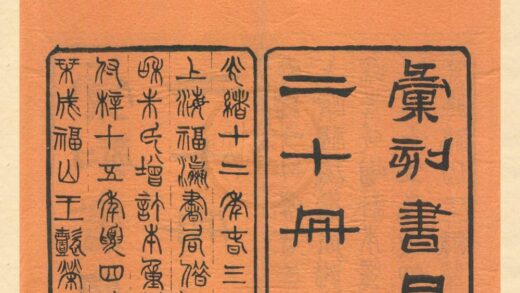 彙刻書目
二十冊
光緒十二年春三
上海福瀛書局借
咊朱氏增訂本重
付梓十五年夏四
栞成福山王懿榮